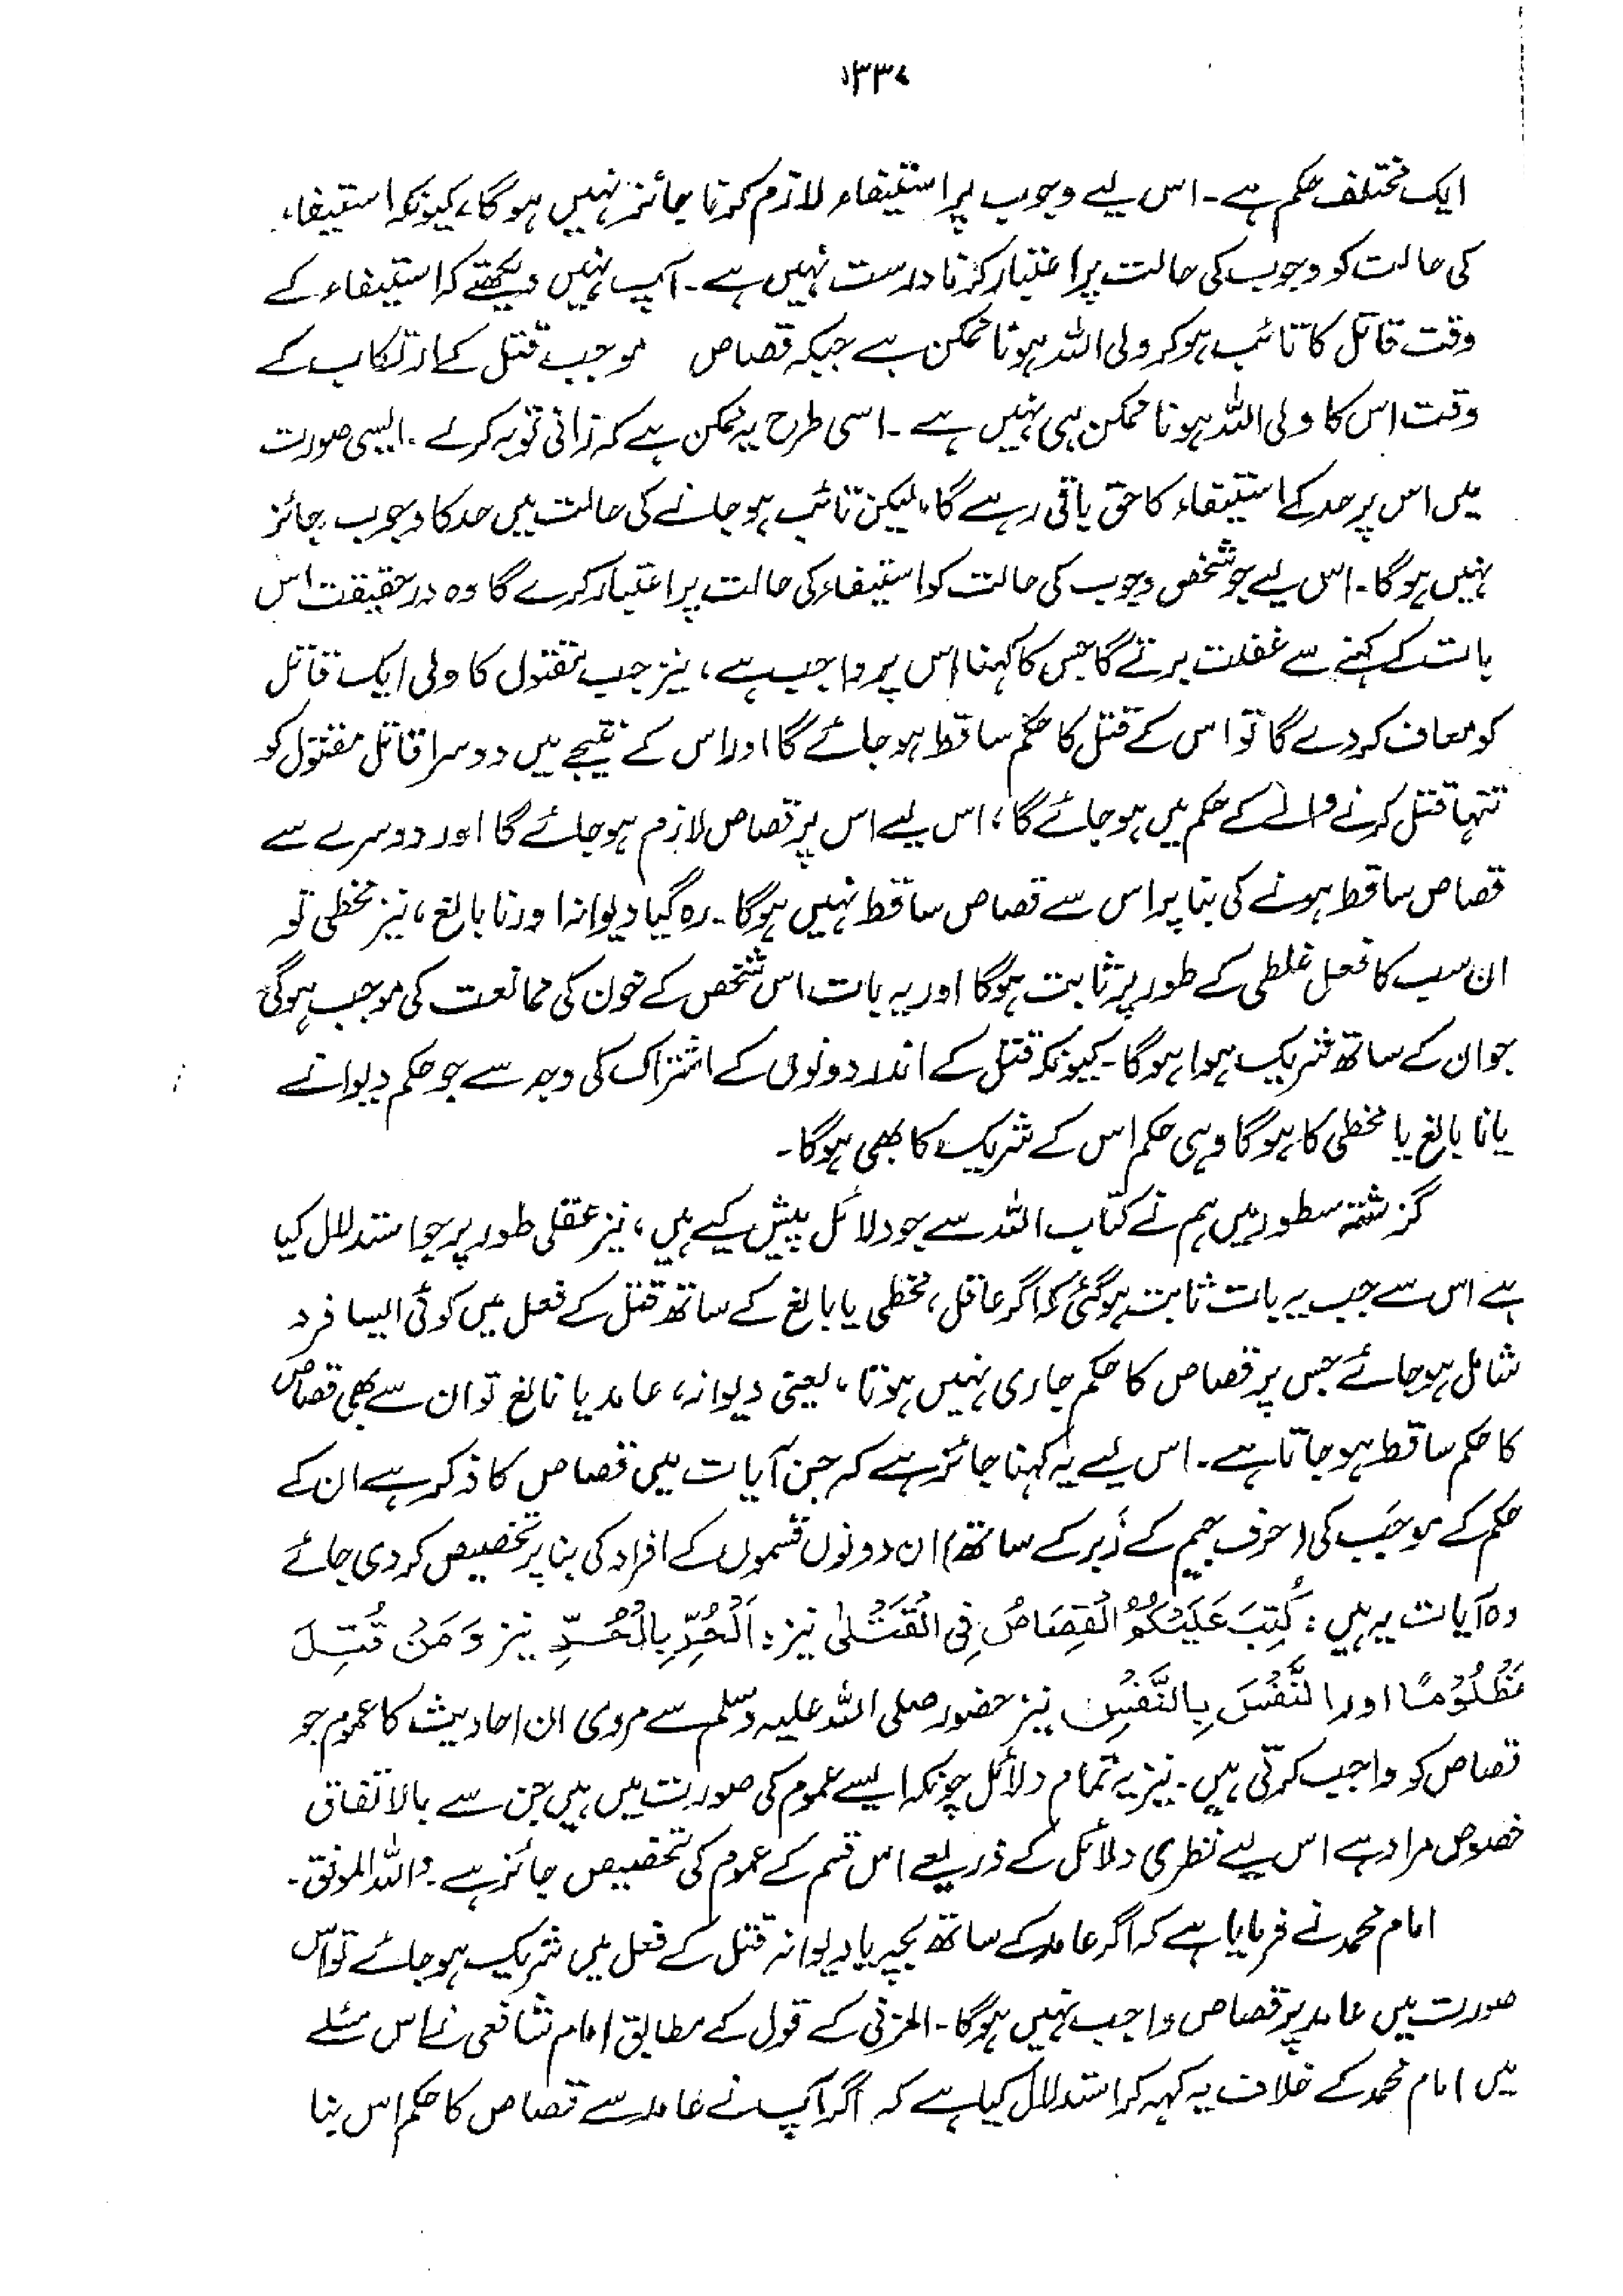 ۳۳۷
ایک مختلف حکم ہے۔ اس لیے وجوب پر استیفاء لازم کرنا جائز نہیں ہوگا، کیونکہ استیفاء
کی حالت کو وجوب کی حالت پر اعتبار کرنا درست نہیں ہے۔ آپ نہیں دیکھتے کہ استیفاء کے
وقت قاتل کا تائب ہو کر ولی اللہ ہونا ممکن ہے جبکہ قصاص موجب قتل کے ارتکاب کے
وقت اس کا ولی اللہ ہونا ممکن ہی نہیں ہے۔ اسی طرح یہ ممکن ہے کہ زانی توبہ کرلے۔ ایسی صورت
میں اس پر حد کے استیفاء کا حق باقی رہے گا، لیکن تائب ہو جانے کی حالت میں حد کا وجوب جائز
نہیں ہوگا۔ اس لیے جو شخص وجوب کی حالت کو استیفاء کی حالت پر اعتبار کرے گا وہ درحقیقت اس
بات کے کہنے سے غفلت برتے گا جس کا کہنا اس پر واجب ہے، نیز جب مقتول کا ولی ایک قاتل
کو معاف کر دے گا تو اس کے قتل کا حکم ساقط ہو جائے گا اور اس کے نتیجے میں دوسرا قاتل مقتول کو
تنہا قتل کرنے والے کے حکم میں ہو جائے گا، اس لیے اس پر قصاص لازم ہو جائے گا اور دوسرے سے
قصاص ساقط ہونے کی بنا پر اس سے قصاص ساقط نہیں ہوگا۔ رہ گیا دیوانہ اور نابالغ، نیز مخطی تو
ان سب کا فعل غلطی کے طور پر ثابت ہوگا اور یہ بات اس شخص کے خون کی ممانعت کی موجب ہوگی
جو ان کے ساتھ شریک ہوا ہوگا۔ کیونکہ قتل کے اندر دونوں کے اشتراک کی وجہ سے جو حکم دیوانے
یا نابالغ یا مخطی کا ہوگا وہی حکم اس کے شریک کا بھی ہوگا۔
گزشتہ سطور میں ہم نے کتاب اللہ سے جو دلائل پیش کیے ہیں، نیز عقلی طور پر جو استدلال کیا
ہے اس سے جب یہ بات ثابت ہوگئی کہ اگر عاقل، مخطی یا بالغ کے ساتھ قتل کے فعل میں کوئی ایسا فرد
شامل ہو جائے جس پر قصاص کا حکم جاری نہیں ہوتا، یعنی دیوانہ، عامد یا نابالغ تو ان سے بھی قصاص
کا حکم ساقط ہو جاتا ہے۔ اس لیے یہ کہنا جائز ہے کہ جن آیات میں قصاص کا ذکر ہے ان کے
حکم کے موجَب کی (حرف جیم کے زَبر کے ساتھ) ان دونوں قسموں کے افراد کی بنا پر تخصیص کر دی جائے
وہ آیات یہ ہیں: کُتِبَ عَلَیْکُمُ الْقِصَاصُ فِی الْقَتْلٰی نیز: اَلْحُرِّ بِالْحُرِّ نیز وَمَنْ قُتِلَ
مَظْلُوْمًا اور النَّفْسَ بِالنَّفْسِ نیز حضور صلی اللہ علیہ وسلم سے مروی ان احادیث کا عموم جو
قصاص کو واجب کرتی ہیں۔ نیز یہ تمام دلائل چونکہ ایسے عموم کی صورت میں ہیں جن سے بالاتفاق
خصوص مراد ہے اس لیے نظری دلائل کے ذریعے اس قسم کے عموم کی تخصیص جائز ہے۔ واللہ الموفق۔
امام محمد نے فرمایا ہے کہ اگر عامد کے ساتھ بچہ یا دیوانہ قتل کے فعل میں شریک ہو جائے تو اس
صورت میں عامد پر قصاص واجب نہیں ہوگا۔ المزنی کے قول کے مطابق امام شافعی نے اس مسئلے
میں امام محمد کے خلاف یہ کہہ کر استدلال کیا ہے کہ اگر آپ نے عامد سے قصاص کا حکم اس بنا